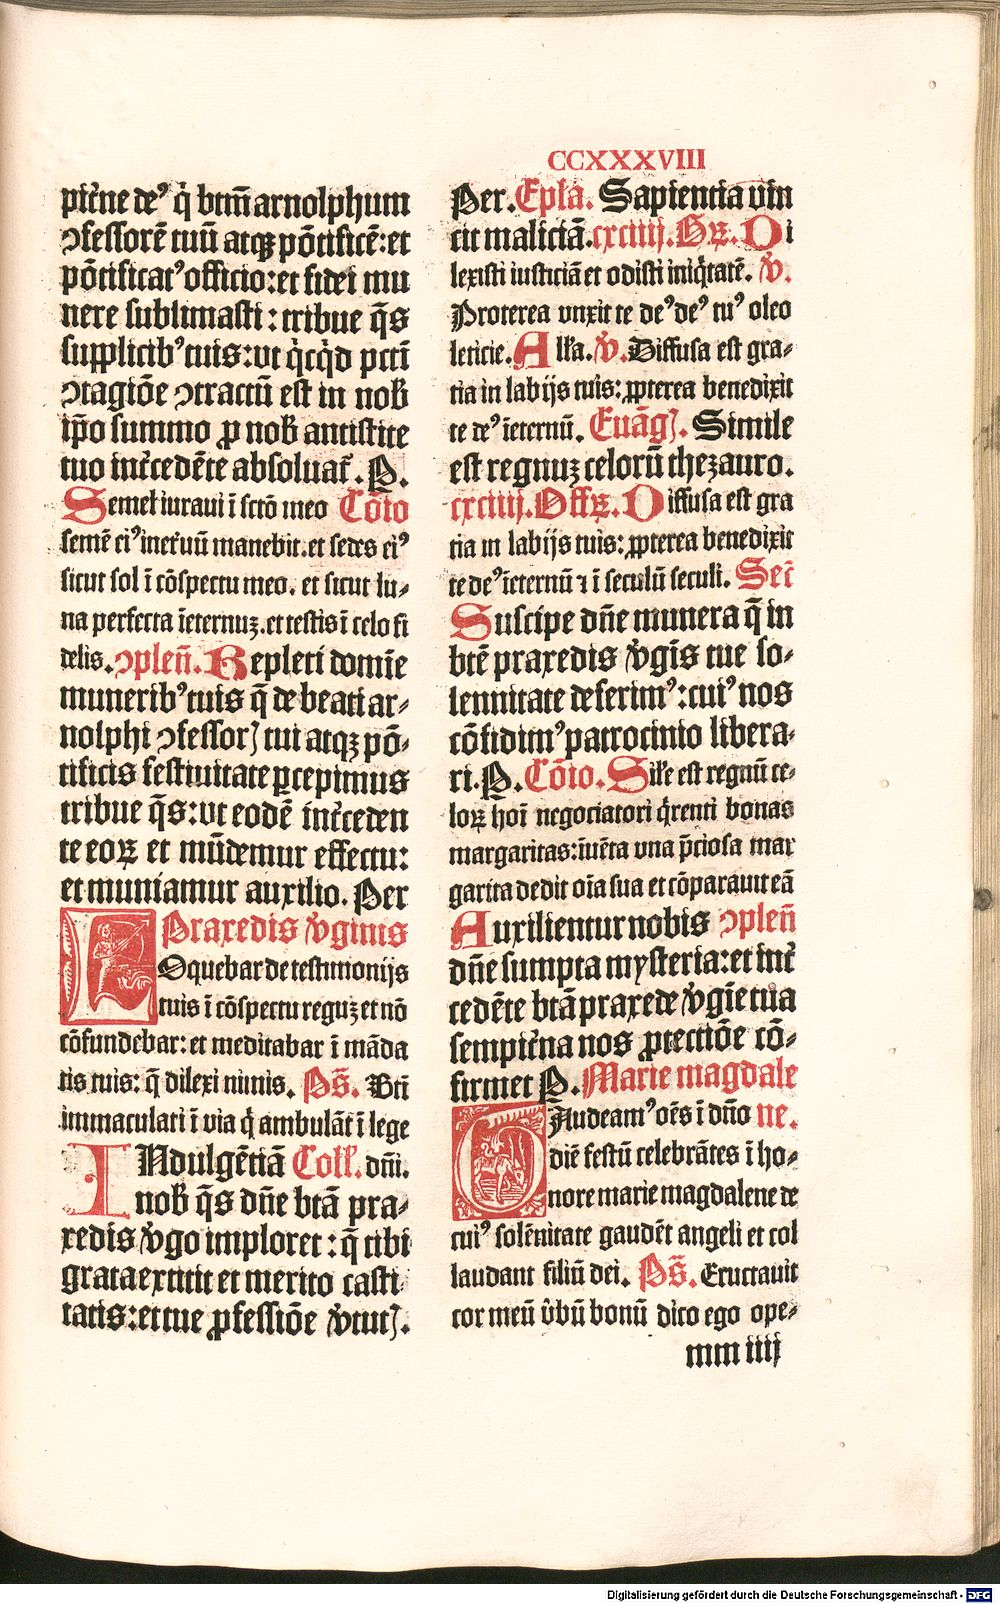 CCXXXVIII
pit᷑ne deꝰ q̇ btm̄ arnolphum
ↄfessorē tuū atqꝫ pōtificē: et
pōtificatꝰ officio: et fidei mu
nere sublimasti: tribue q̄s
supplicibꝰ tuis: ut q̇cq̇d pcti
ↄtagiōe ↄtractū est in nob̄
ip̄o summo ꝓ nob̄ antistite
tuo int᷑cedēte absoluat᷑. P.
Semel iuraui ī sctō meo Cōio
semē eiꝰ inet᷑nū manebit. et sedes eiꝰ
sicut sol ī cōspectu meo. et sicut lu⸗
na perfecta īeternuꝫ. et testis ī celo fi
delis. ↄplen̄. Repleti domīe
muneribꝰ tuis q̄ de beati ar⸗
nolphi ↄfessorꝭ tui atqꝫ pō⸗
tificis festiuitate ꝑcepimus
tribue q̄s: ut eodē int᷑ceden
te eoꝝ et mūdemur effectu:
et muniamur auxilio. Per
Praxedis v̓ginis
Loquebar de testimonijs
tuis ī cōspectu reguꝫ et nō
cōfundebar: et meditabar ī māda
tis tuis: q̄ dilexi nimis. Ps̄. Bti
immaculati ī via q̇ ambulāt ī lege
INdulgētiā Coll. dn̄i.
nob̄ q̄s dn̄e btā pra⸗
xedis v̓go imploret: q̄ tibi
grata extitit et merito casti
tatis: et tue ꝓfessiōe v̓tutꝭ.
Per. Epla. Sapientia vin
cit maliciā. cxciiij. Gꝝ. Di
lexisti iusticiā et odisti iniq̇tatē. V̓.
Proterea vnxit te deꝰ deꝰ tuꝰ oleo
leticie. Alla. V̓. Diffusa est gra⸗
tia in labijs tuis: ꝓpterea benedixit
te deꝰ īeternū. Euāgꝭ. Simile
est regnuꝫ celorū thezauro.
cxciiij. Offꝝ. Diffusa est gra
tia in labijs tuis: ꝓpterea benedixit
te deꝰ īeternū ⁊ ī seculū seculi. Sec̄
Suscipe dn̄e munera q̄ in
btē praxedis v̓gīs tue so⸗
lennitate deferimꝰ: cuiꝰ nos
cōfidimꝰ patrocinio libera⸗
ri. P. Cōio. Sile est regnū ce⸗
loꝝ hoī negociatori q̄renti bonas
margaritas: īuēta vna p̄ciosa mar
garita dedit oīa sua et cōparauit eā
Auxilientur nobis ↄplen̄
dn̄e sumpta mysteria: et int᷑
cedēte btā praxede v̓gīe tua
sempit᷑na nos ꝓtectiōe cō⸗
firmet P. Marie magdale
Gaudeamꝰ oēs ī dn̄o ne.
diē festū celebrātes ī ho⸗
nore marie magdalene de
cuiꝰ solēnitate gaudēt angeli et col
laudant filiū dei. Ps̄. Eructauit
cor meū v̓bū bonū dico ego ope⸗
mm iiij
Digitalisierung gefördert durch die Deutsche Forschungsgemeinschaft - DFG